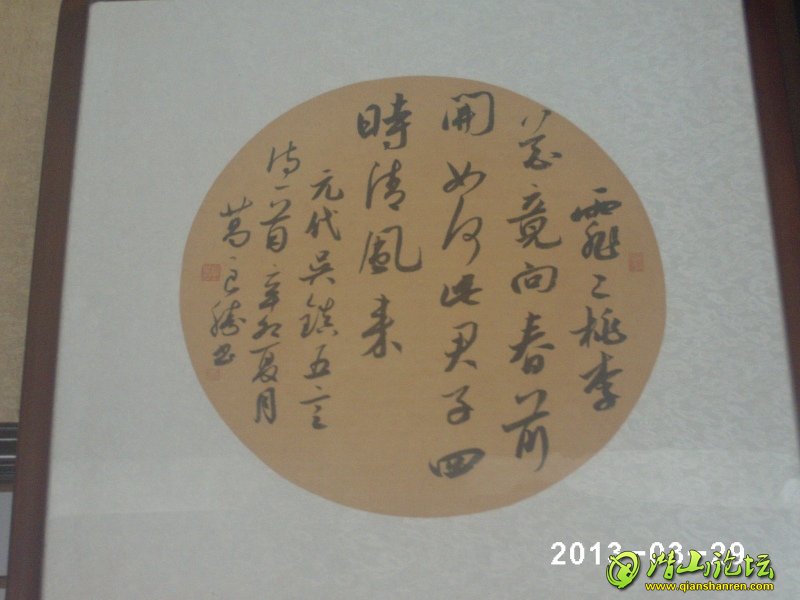 霏〻桃李
花竟向春前
開如何此君子四
時清風来
元代吴鎮五言
诗一首辛卯夏月
葛良胜书
2013-03-29
潜山论坛
www.qianshanren.com